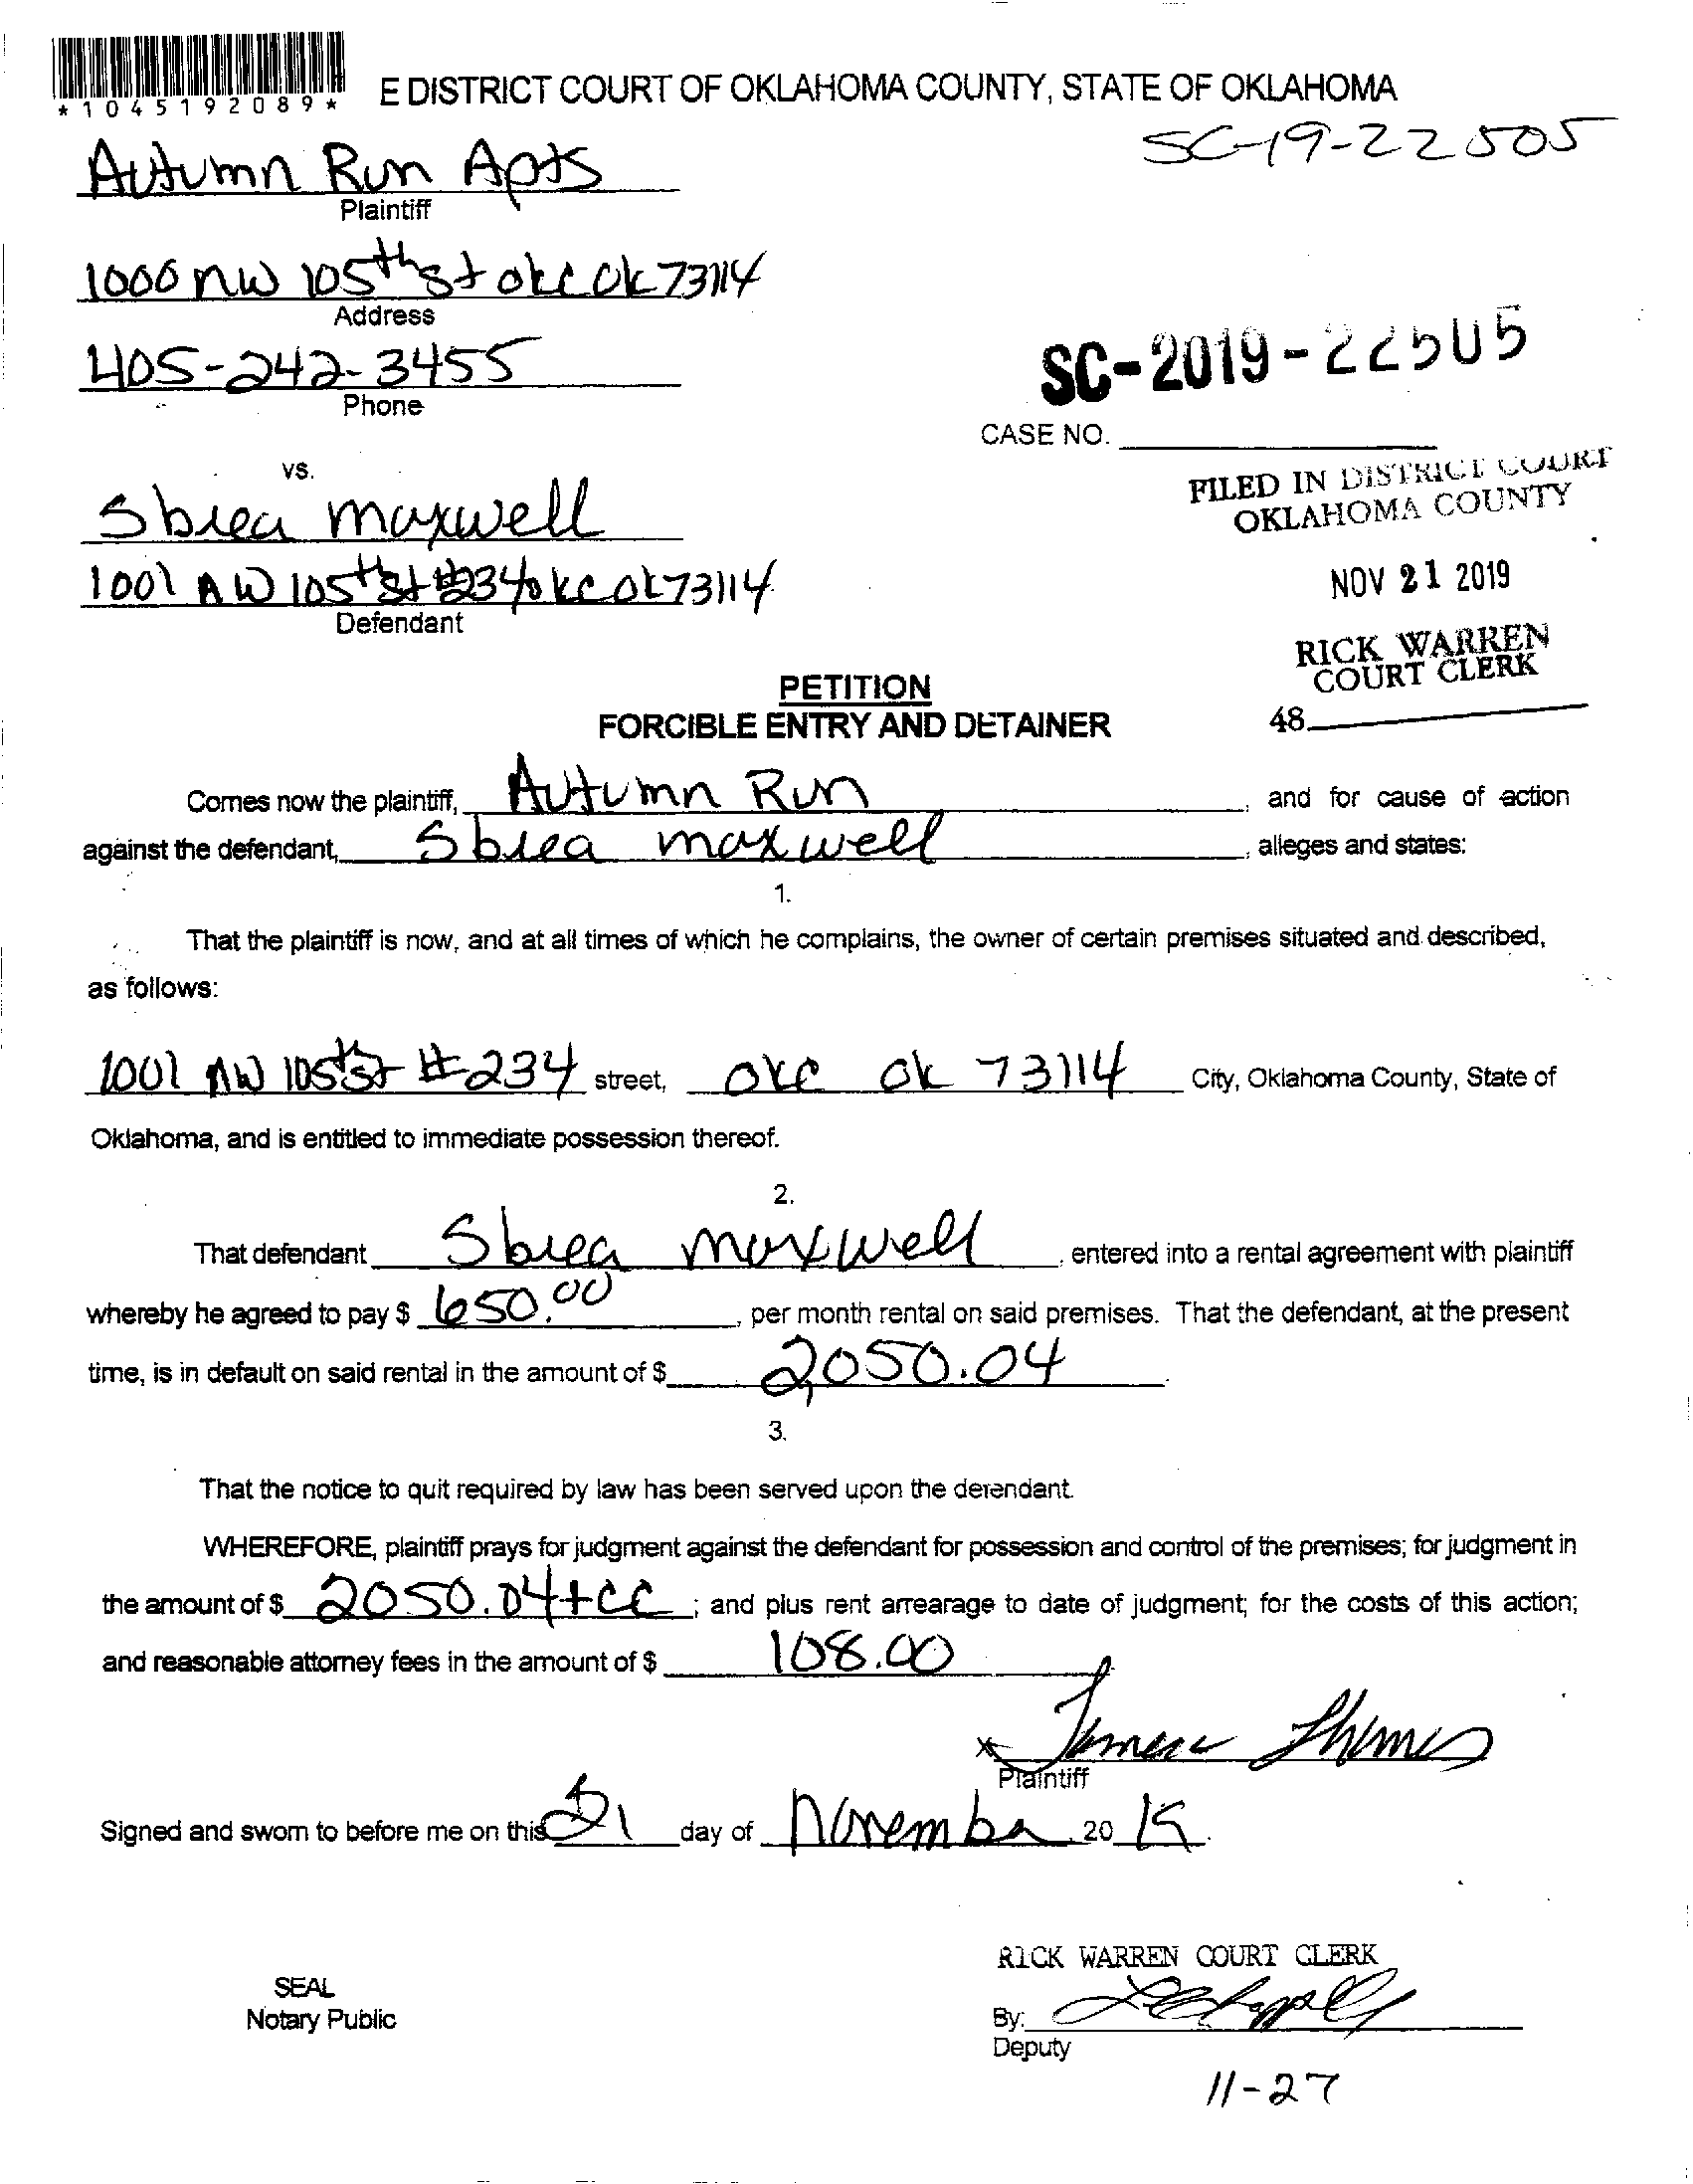 *1045192089*
E DISTRICT COURT OF OKLAHOMA COUNTY, STATE OF OKLAHOMA
SC-19-22505
Autumn Run Apts
Plaintiff
1000 NW 105th St okc Ok 73114
Address
405-242-3455
Phone
SC-2019-22505
CASE NO.
vs.
FILED IN DISTRICT COURT
OKLAHOMA COUNTY
Sbrea maxwell
1001 NW 105th St #234 okc ok 73114
Defendant
NOV 21 2019
RICK WARREN
COURT CLERK
48
PETITION
FORCIBLE ENTRY AND DETAINER
Comes now the plaintiff, Autumn Run, and for cause of action
against the defendant, Sbrea maxwell, alleges and states:
1.
That the plaintiff is now, and at all times of which he complains, the owner of certain premises situated and described,
as follows:
1001 NW 105th St #234 street, okc ok 73114 City, Oklahoma County, State of
Oklahoma, and is entitled to immediate possession thereof.
2.
That defendant Sbrea maxwell, entered into a rental agreement with plaintiff
whereby he agreed to pay $ 650.00, per month rental on said premises. That the defendant, at the present
time, is in default on said rental in the amount of $ 2,050.04.
3.
That the notice to quit required by law has been served upon the defendant.
WHEREFORE, plaintiff prays for judgment against the defendant for possession and control of the premises; for judgment in
the amount of $ 2050.04+CC; and plus rent arrearage to date of judgment; for the costs of this action;
and reasonable attorney fees in the amount of $ 108.00
x
Plaintiff
Signed and sworn to before me on this 21 day of November, 20 19.
RICK WARREN COURT CLERK
SEAL
Notary Public
By:
Deputy
11-27